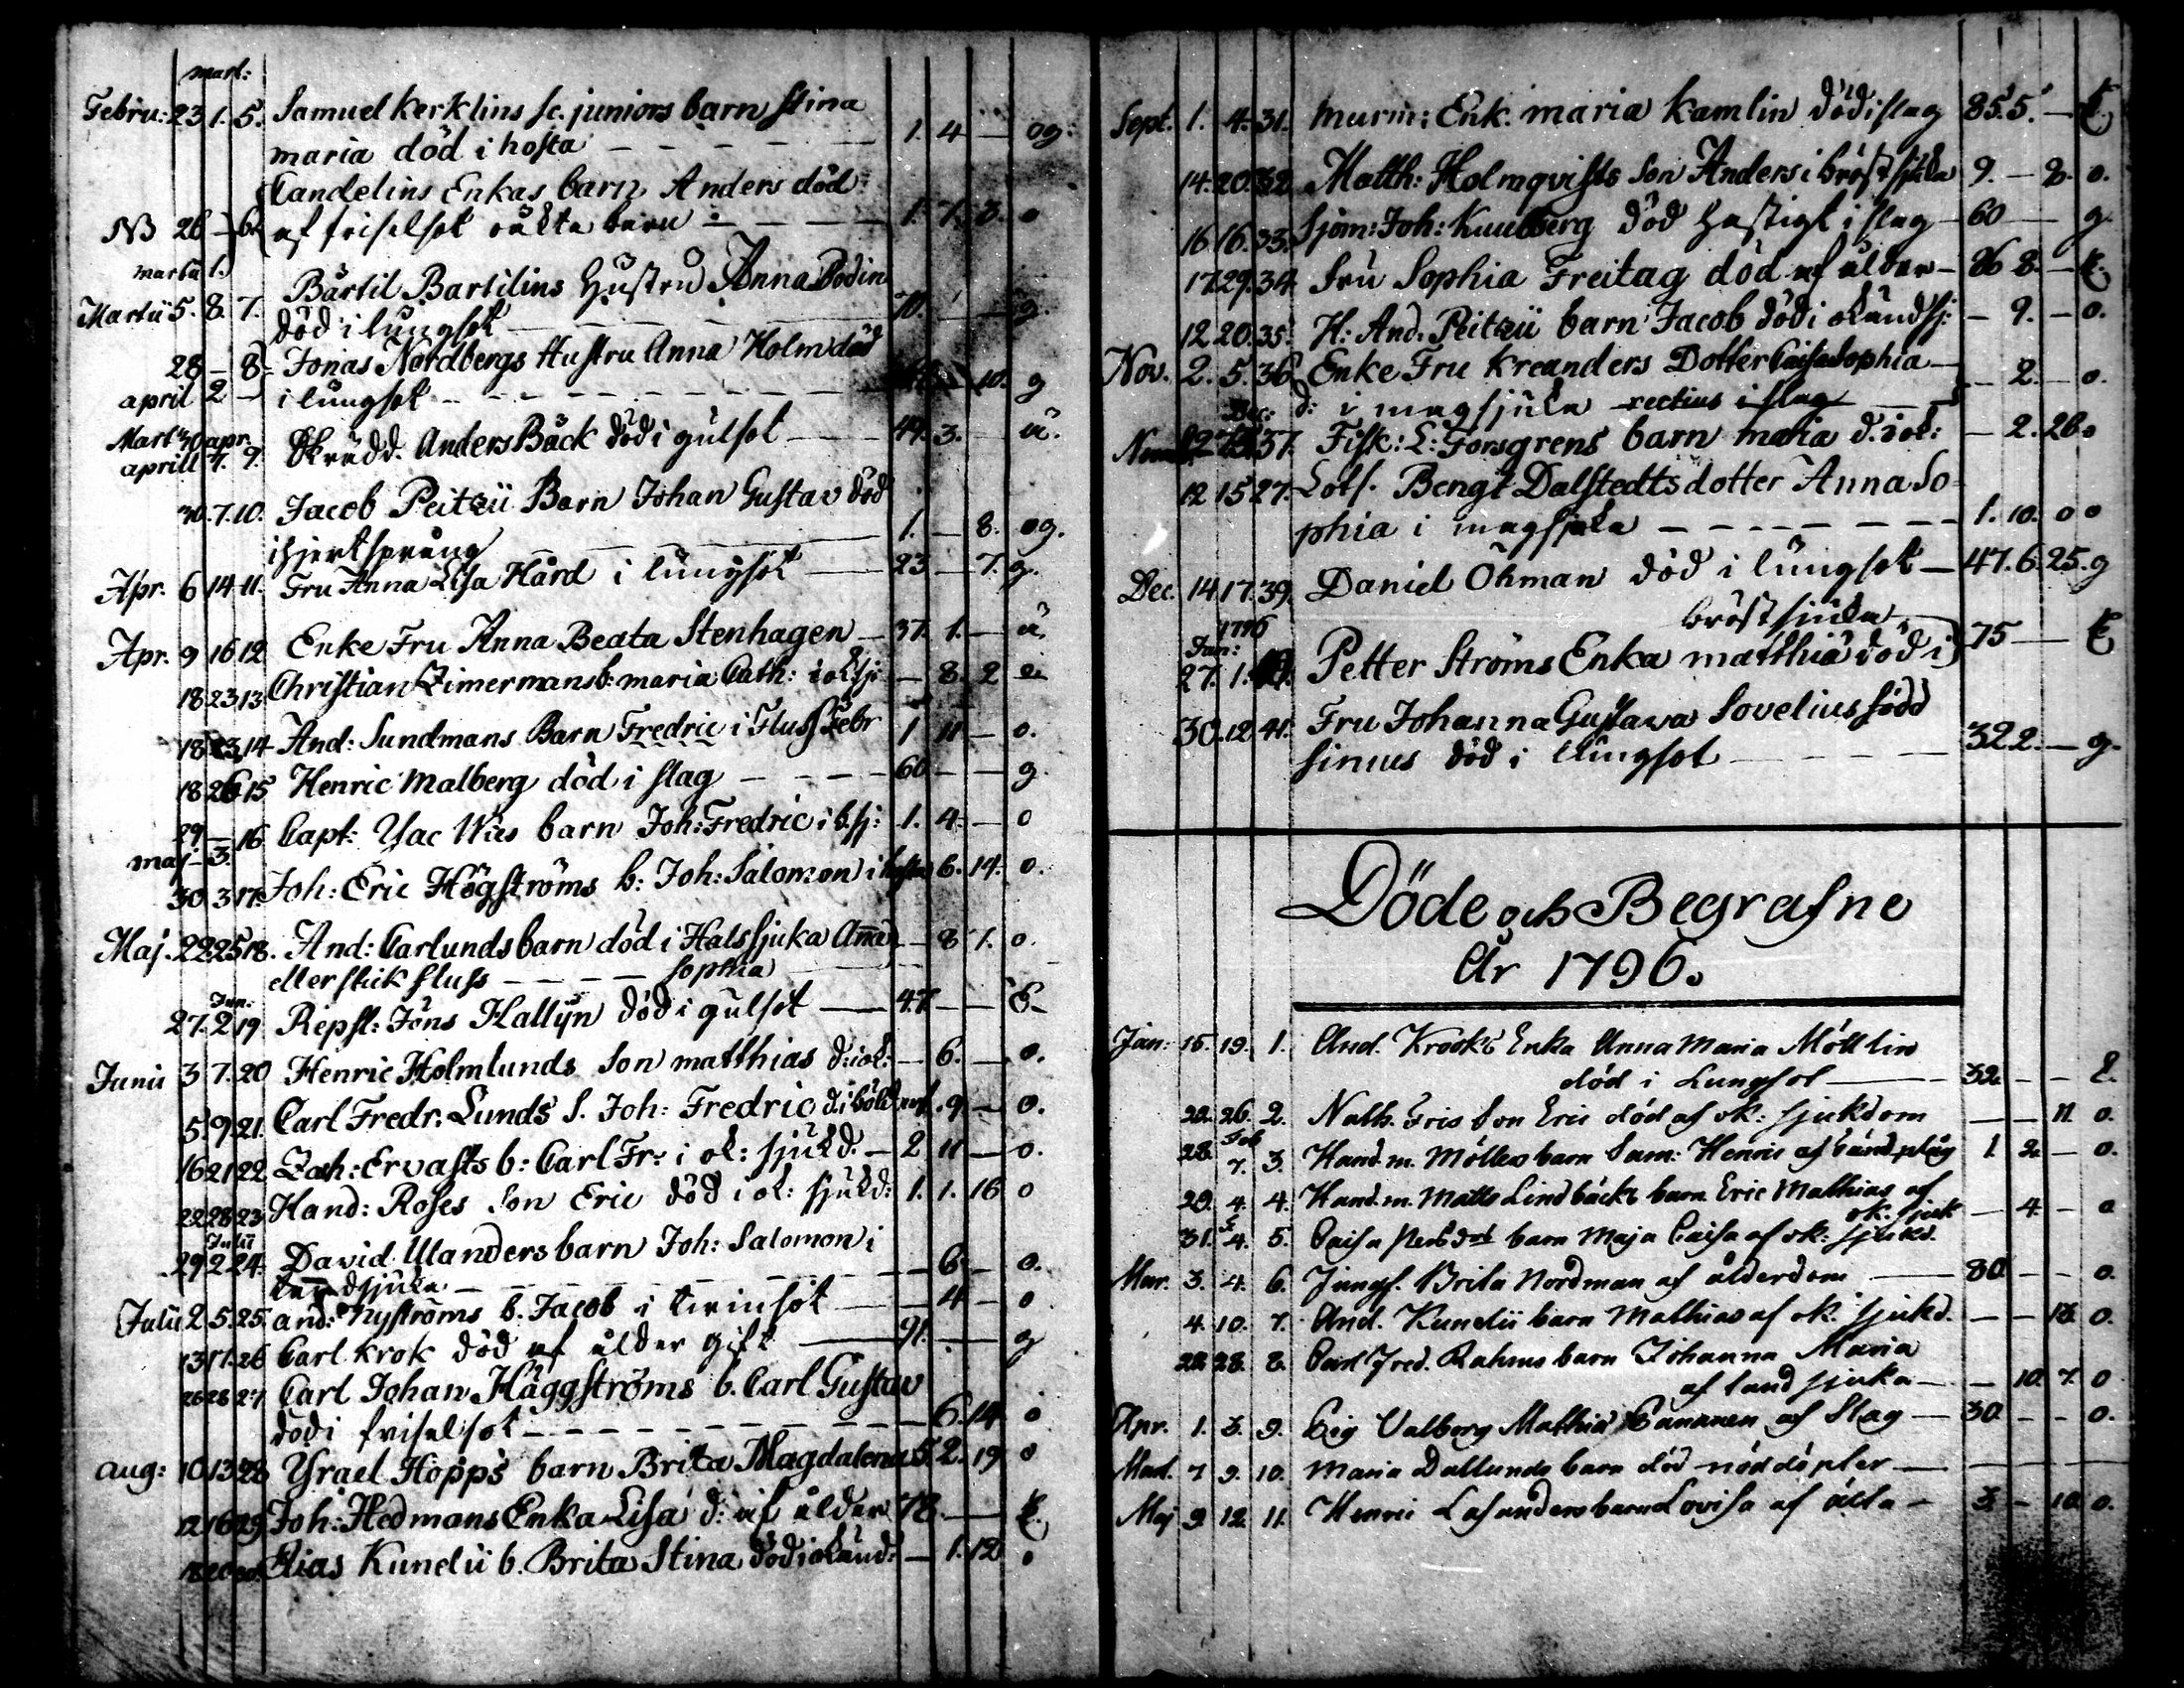 mart:
Febru: 23 1. 5. Samuel Kerklins sc. juniors barn Stina
maria död i hosta 1. 4 — og:
Candelins Enkas barn Anders död
NB 26 — 6. af friselsot äkta barn 1. 7. 3. o
martii 1.
Bärtil Bartilins Hustru Anna Bodin
Martii 5. 8. 7. död i lungsot 70. — g.
28 — 8. Jonas Nordbergs Hustru Anna Holm död
april 2 i lungsot 10. g
Mart 30 apr.
aprill 4. 9. Skrädd. Anders Bäck död i gulsot 49. 3. — ä.
30. 7. 10. Jacob Peitzii Barn Johan Gustav död
i hjertsprång 1. — 8. og.
Apr. 6 14 11. Fru Anna Lisa Hård i lungsot 23 — 7. g.
Apr. 9 16 12 Enke Fru Anna Beata Stenhagen 37. 1. — ä.
18 23 13 Christian Zimermans b: maria Cath: i ok sj: — 8. 2
18 23 14 And: Sundmans Barn Fredric i Fluss Febr 1 11 — o.
18 26 15 Henric Malberg död i slag 60 — — g.
29 — 16 Capt: Ysac Wies barn Joh: Fredric i b. sj: 1. 4 — o
maj 3.
30 3 17. Joh: Eric Högströms b: Joh: Salomon i hosta 6. 14. o.
Maj. 22 25 18. And: Carlunds barn död i Halssjuka Anna — 8 1. o.
eller stick fluss Sophia
Jun.
27. 2 19 Repsl: Jöns Hallyn död i gulsot 47 — —
Junii 3 7. 20 Henric Holmlunds Son matthias d: i ok: — 6. — o.
5. 9. 21. Carl Fredr. Lunds S. Joh: Fredric d. i 9 — o.
16 21 22 Zach: Ervasts b: Carl Fr: i ok: sjukd. 2 11 — o.
22 28 23 Hand: Roses Son Eric död i ok: sjukd: 1. 1. 16 o
Julii
29 2 24. David Ulanders barn Joh: Salomon i
tandsjuka — 6 — o.
Julii 2 5. 25. and: Nyströms b. Jacob i tvinsot — 4 — o
13 17. 26 Carl Krok död af ålder gift 91. — g
26 28 27 Carl Johan Häggströms b. Carl Gustav
död i friselsot — 6. 14 o
aug: 10 13 28 Ysrael Hopps barn Brita Magdalena 5. 2. 19 o
12 16 29 Joh: Hedmans Enka Lisa d: af ålder 78. — E.
18 20 30. Elias Kunelii b. Brita Stina död i okänd: — 1. 12 o
Sept. 1. 4. 31. murm: Enk. maria Kamlin död i slag 85. 5. — E.
14. 20. 32 Matth: Holmqvists Son Anders i bröstsjuka 9. — 8. o.
16 16. 33. Sjöm: Joh: Kuulberg död hastigt i slag 60 — g.
17. 29. 34. Fru Sophia Freitag död af ålder 86 8. — E.
12 20. 35. H: And. Peitzii barn Jacob död i okänd sj: — 9. — o.
Nov. 2. 5. 36. Enke Fru Kreanders Dotter Caisa Sophia
d: i magsjuka rectius i slag — 2. — o.
Dec:
37. Fisk: L: Forsgrens barn maria d. i ok: — 2. 26 o
12 15 27. Lots. Bengt Dalstedts dotter Anna So-
phia i magsjuka 1. 10. o o
Dec. 14 17. 39. Daniel Öhman död i lungsot 47. 6. 25. g
1796 bröstsjuka
Jan:
27. 1. 40. Petter Ströms Enka matthia död i 75 — E
30. 12 41. Fru Johanna Gustava Sovelius född
Sinius död i lungsot 32 2. — g.
Döde och Begrafne
År 1796.
Jan: 15. 19. 1. And. Krooks Enka Anna Maria Möllin
död i Lungsot 32. — — E.
22. 26. 2. Nath. Fris Son Eric död af ok: sjukdom — — 11 o.
Feb
28. 7. 3. Hand. m. Möllers barn Sam: Henric af tandplåg 1. 2. — o.
29. 4. 4. Hand. m. Matts Lindbäcks barn Eric Mathias af
ok. sjuk — 4. — o
31. 4. 5. Caisa barn Maja Caisa af ok: sjukd.
Mar. 3. 4. 6. Jungf. Brita Nordman af ålderdom 80. — — o.
4. 10. 7. And. Kunelii barn Mathias af ok. sjukd. — — 18. o.
22 28. 8. Carl Fred. Rahms barn Johanna Maria
af tand sjuka — 10. 7. o
Apr. 1. 3. 9. Pig Valborg Mathia af Slag 30. — — o.
Mart. 7 9. 10. Maria Dallunds barn död nöddöpter
Maj 9. 12. 11. Henric Lasanders barn Lovisa af älta 3. — 10. o.